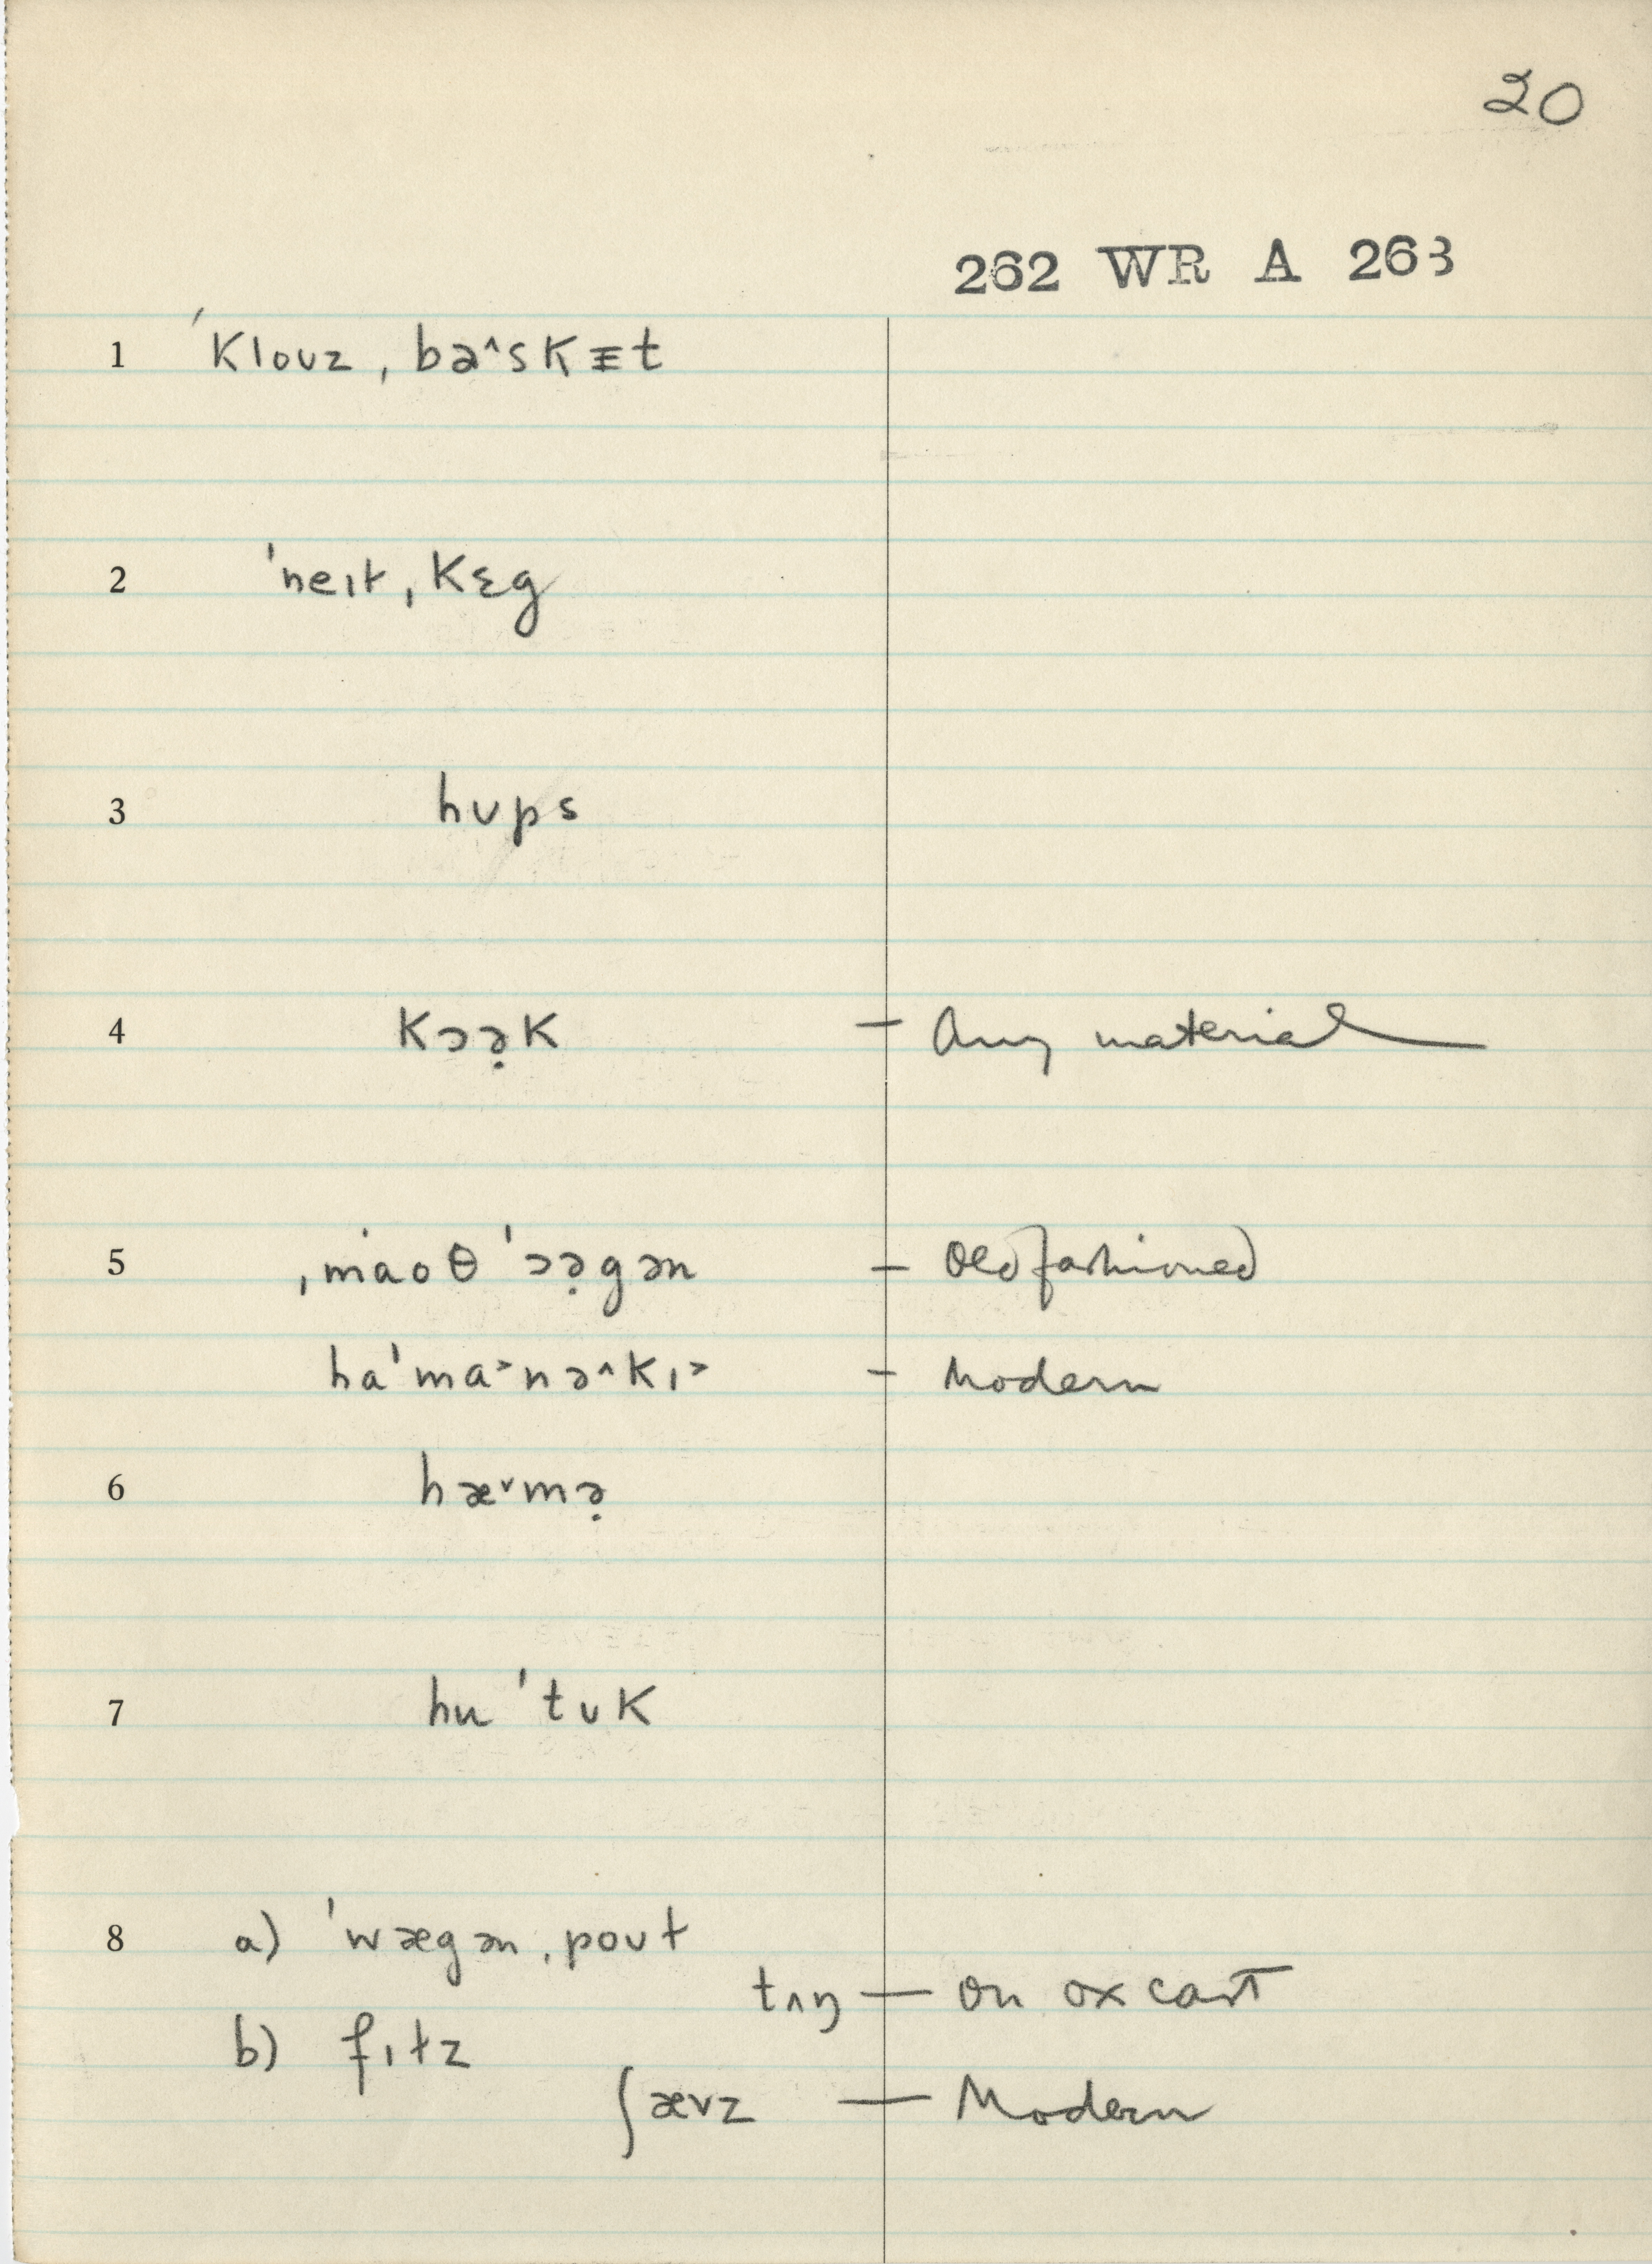 20
262 WR A 263
1 ˈklouz ˌbəˆskᵻt
2 ˈneɪt ˌkɛg
3 hʊps
4 kɔə̣k — Any material
5 ˌmaoθ ˈɔə̣gən — Old fashioned
haˈma˃nəˆkɪ˃ — Modern
6 hæˇmə̣
7 huˈtʊk
8 a) ˈwægən ˌpoʊt
tʌŋ — On ox cart
b) fɪtz
ʃævz — Modern